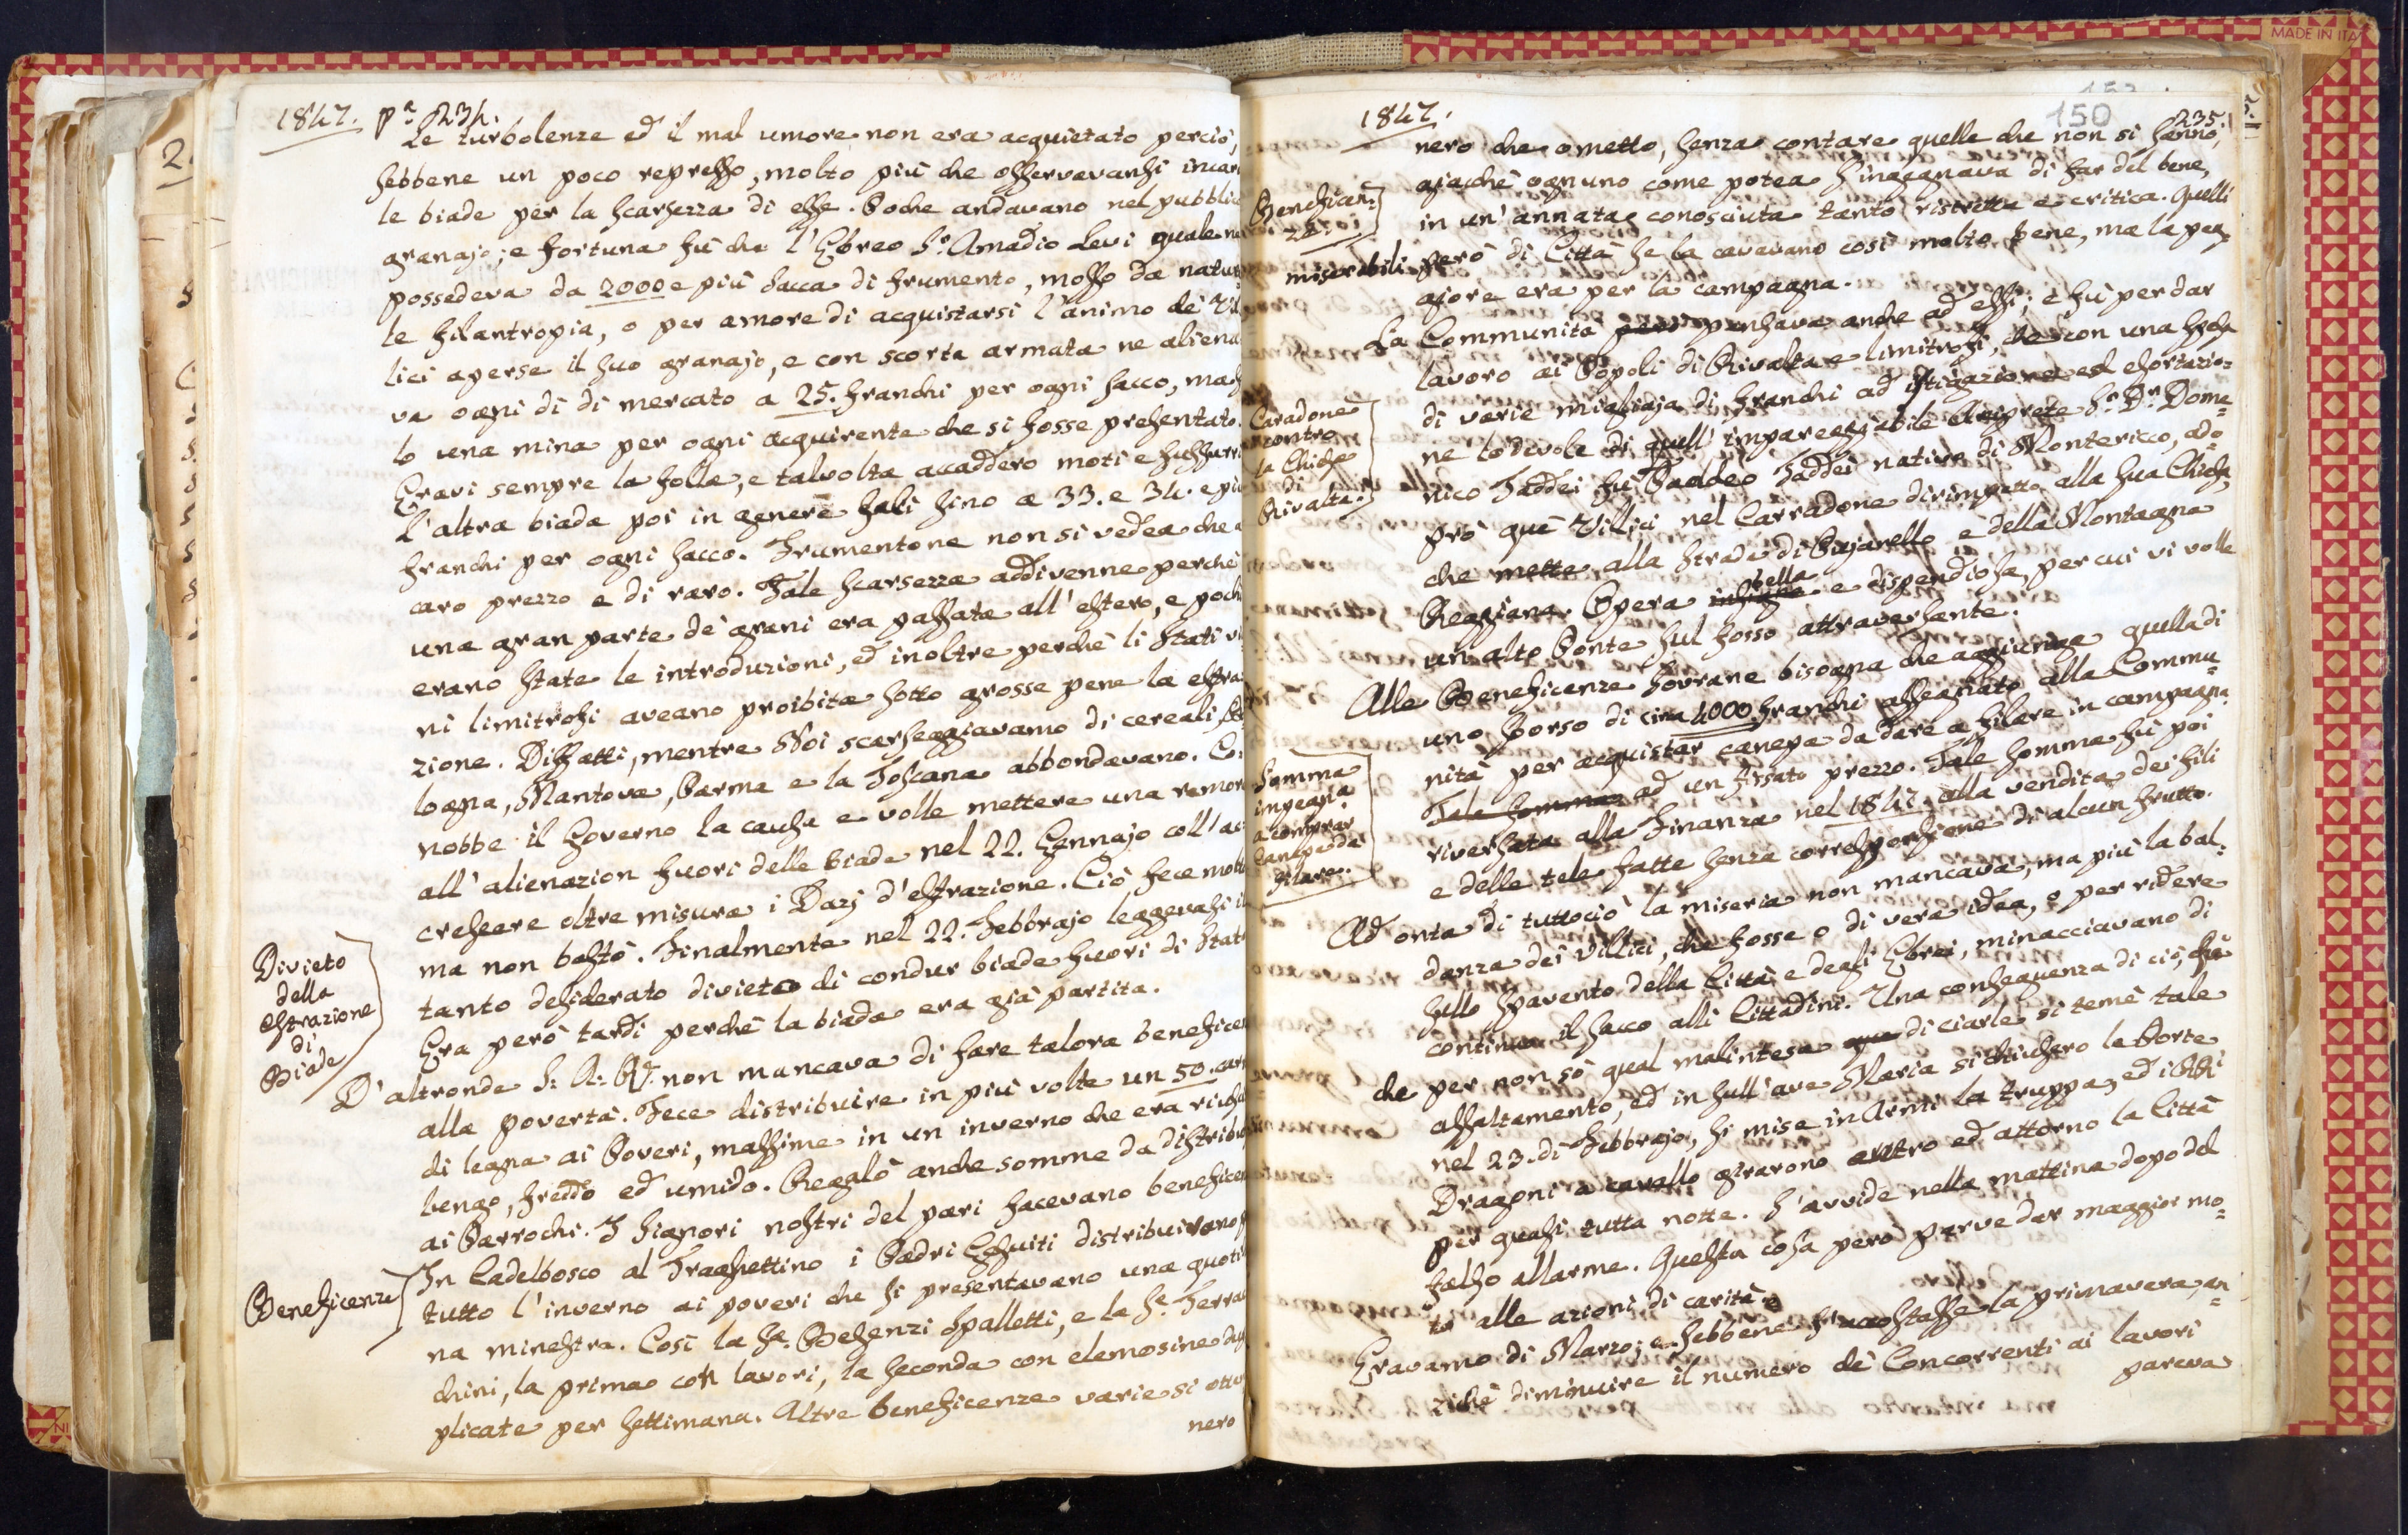 MADE IN ITA
1847. pa. 234.
Le turbolenze ed il mal umore non era acquietato perciò,
sebbene un poco represso, molto più che osservavansi incar
le biade per la scarsezza di esse. Poche andavano nel pubblic
granajo; e fortuna fù che l'Ebreo Sr. Amadio Levi quale ne
possedeva da 2000 e più sacca di frumento, mosso da natur
le filantropia, o per amore di acquistarsi l'animo de' Vil
lici aperse il suo granajo, e con scorta armata ne aliena
va ogni dì di mercato a 25. franchi per ogni sacco, ma s
lo una mina per ogni acquirente che si fosse presentato.
Eravi sempre la folla, e talvolta accaddero moti e sussurri
L'altra biada poi in genere salì sino a 33. e 34. e più
franchi per ogni sacco. Frumentone non si vedea che a
caro prezzo e di raro. Tale scarsezza addivenne perchè
una gran parte de' grani era passata all'estero, e poch
erano state le introduzioni, ed inoltre perchè li Stati vi
ni limitrofi aveano proibita sotto grosse pene la estra
zione. Diffatti, mentre Noi scarseggiavamo di cereali, Bo
logna, Mantova, Parma e la Toscana abbondavano. Co
nobbe il Governo la causa e volle mettere una remora
all'alienazion fuori delle biade nel 22. Gennajo coll'ac
crescere oltre misura i Dazj d'estrazione. Ciò fece molto
ma non bastò. Finalmente nel 22. Febbrajo leggevasi il
tanto desiderato divieto di condur biade fuori di Stato
Era però tardi perchè la biada era già partita.
Divieto
della
estrazione
di
Biade
D'altronde S: A: R: non mancava di fare talora beneficen
alla povertà. Fece distribuire in più volte un 50. carr
di legna ai Poveri, massime in un inverno che era riusci
lengo, freddo ed umido. Regalò anche somme da distribu
ai Parrochi. I Signori nostri del pari facevano beneficen
Beneficenze
In Cadelbosco al Traghettino i Padri Gesuiti distribuivano p
tutto l'inverno ai poveri che si presentavano una quoti
na minestra. Così la Sa. Besenzi Spalletti, e la Sa. Ferra
chini, la prima con lavori, la seconda con elemosine du
plicate per settimana. Altre beneficenze varie si otte
nero
1847.
150
235.
nero che ometto, senza contare quelle che non si sanno,
giacchè ognuno come potea s'ingegnava di far del bene,
in un'annata conosciuta tanto ristretta e critica. Quelli
però di Città se la cavavano così molto bene, ma la peg=
giore era per la campagna.
Beneficen=
ze
miserabili
La Communità però pensava anche ad essi; e fù per dar
lavoro ai Popoli di Rivalta e limitrofi, che con una spesa
di varie migliaja di franchi ad istigazione ed esortazio=
ne lodivole di quell'impareggiabile Sr. Dr. Dome=
nico Taddei fù Taddeo Taddei nativo di Montericco, ado=
prò quei Villici nel Carradone dirimpetto alla sua Chiesa,
che mette alla strada di Pujanello e della Montagna
Reggiana. Opera bella e dispendiosa, per cui vi volle
un alto Ponte sul fosso attraversante.
Caradone
contro
la Chiesa
di
Rivalta.
Alle Beneficenze Sovrane bisogna che aggiunga quella di
uno sborso di circa 4000 franchi assegnato alla Commu=
nità per acquistar canepa da dare a filare in campagna
Tale somma ad un fissato prezzo. Tale somma fù poi
riversata alla Finanza nel 1847. alla vendita dei fili
e delle tele fatte senza corresponsione di alcun frutto.
Somma
impegna
a comprar
canepa da
filare.
Ad onta di tuttociò la miseria non mancava, ma più la bal=
danza dei Villici, che fosse o di vera idea, o per ridere
sullo spavento della Città e degli Ebrei, minacciavano di
continuo il sacco alli Cittadini. Una conseguenza di ciò, fù
che per non sò qual malintesa di ciarle si temè tale
assaltamento, ed in sull'ave Maria si chiusero le Porte
nel 23. di Febbrajo, si mise in Armi la truppa, ed i RR.i
Dragoni a cavallo girarono entro ed attorno la Città
per quasi tutta notte. S'avvide nella mattina dopo del
falso allarme. Questa cosa però parve dar maggior mo=
to alle azioni di carità.
Eravamo di Marzo; e sebbene s'accostasse la primavera, an=
zichè diminuire il numero de' Concorrenti ai lavori
pareva